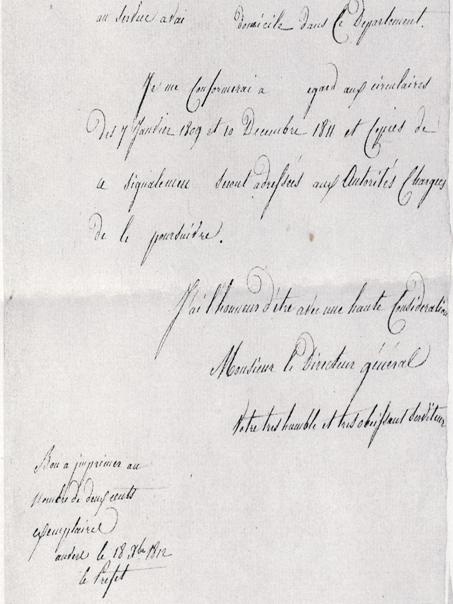 au service avai domicile dans le Département.
Je me Conformerai a egard aux circulaires
Des 7 Janvier 1809 et 10 Decembre 1811 et Copies de
ce signalemen seront adressées aux Autorités Chargées
de le poursuivre.
J'ai l'honneur d'être avec une haute Considération
Monsieur le Directeur général
Votre tres humble et tres obeissant serviteur
Bon a imprimer au
nombre de deux cents
exemplaires
le 18 Xbre 1812
le Prefet